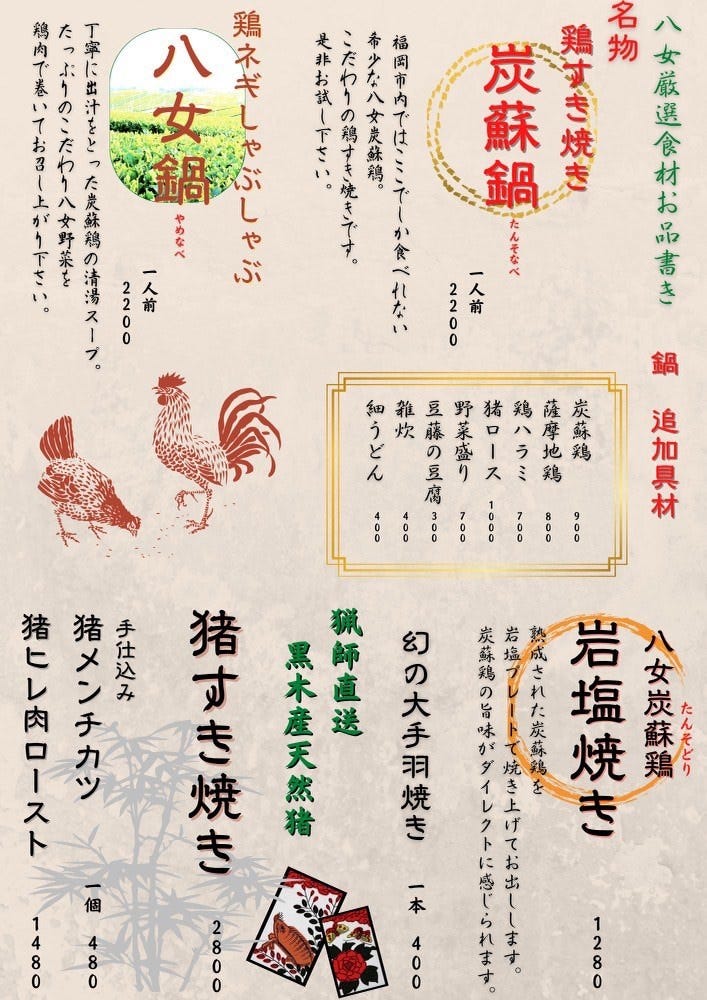 八女厳選食材お品書き
名物
鶏すき焼き
炭蘇鍋
たんそなべ
一人前
2200
福岡市内ではここでしか食べれない
希少な八女炭蘇鶏。
こだわりの鶏すき焼きです。
是非お試し下さい。
鶏ネギしゃぶしゃぶ
八女鍋
やめなべ
一人前
2200
丁寧に出汁をとった炭蘇鶏の清湯スープ。
たっぷりのこだわり八女野菜を
鶏肉で巻いてお召し上がり下さい。
鍋 追加具材
炭蘇鶏 900
薩摩地鶏 800
鶏ハラミ 700
猪ロース 1000
野菜盛り 700
豆藤の豆腐 300
雑炊 400
細うどん 400
八女炭蘇鶏
たんそどり
岩塩焼き
1280
熟成された炭蘇鶏を
岩塩プレートで焼き上げてお出しします。
炭蘇鶏の旨味がダイレクトに感じられます。
幻の大手羽焼き 一本 400
猟師直送
黒木産天然猪
猪すき焼き 2800
手仕込み
猪メンチカツ 一個 480
猪ヒレ肉ロースト 1480